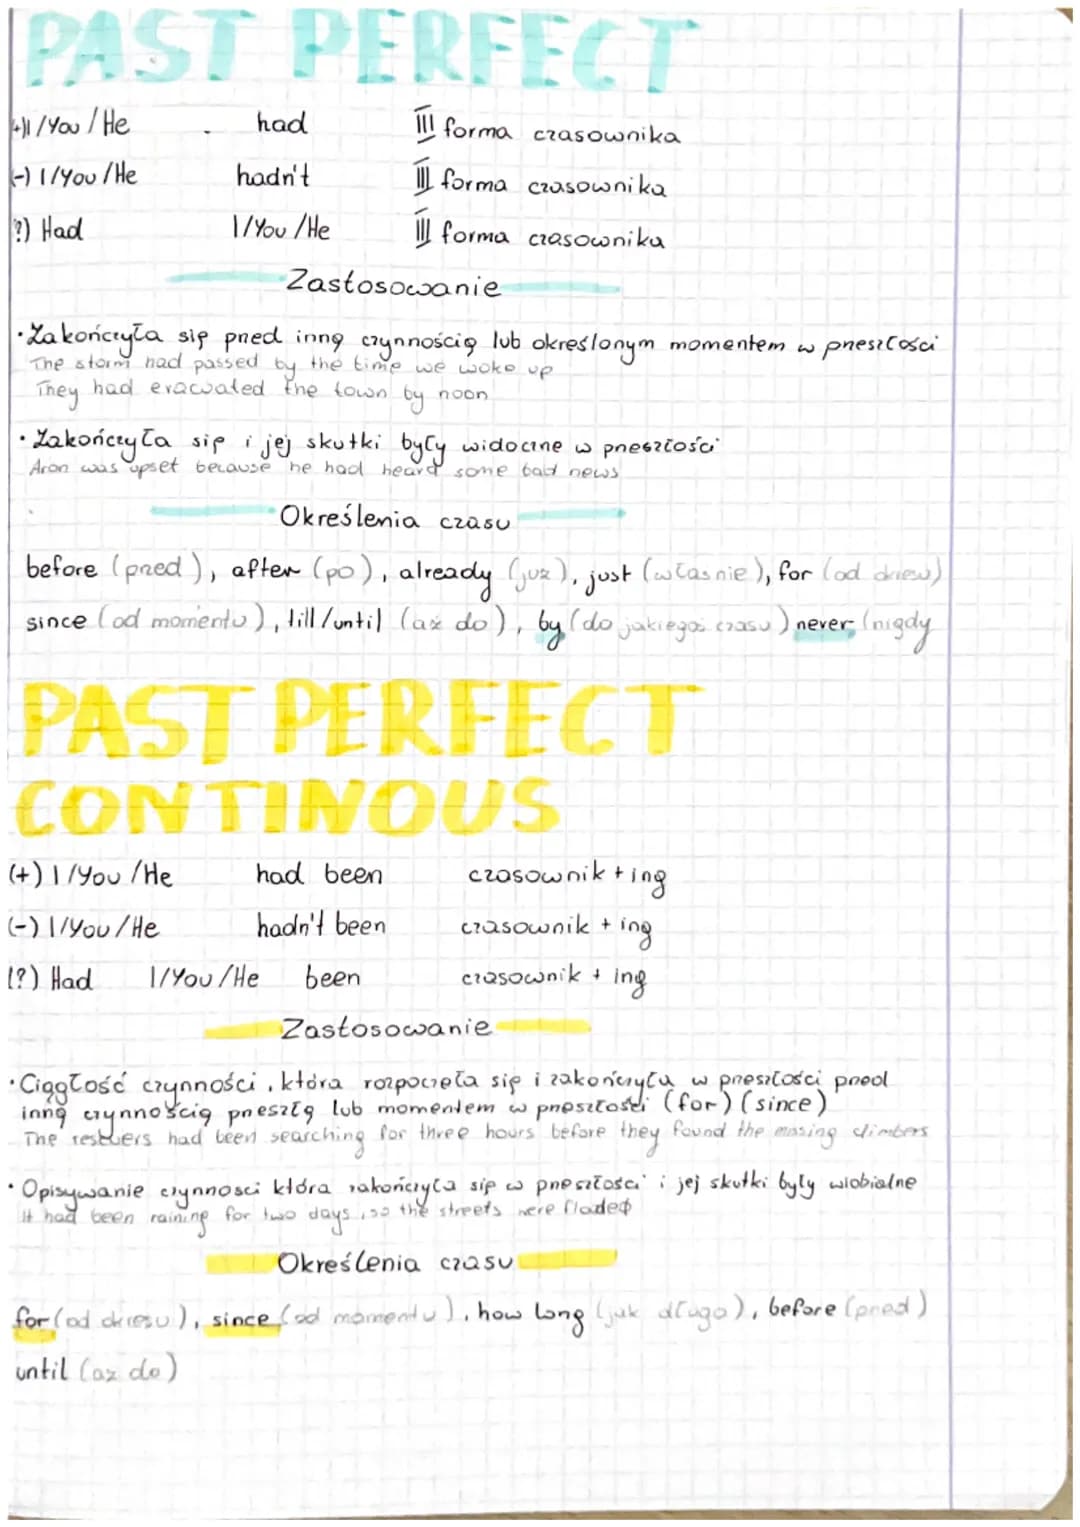 PAST PERFECT
(+) I/You/He had III forma czasownika
(-) I/You/He hadn't III forma czasownika
?) Had I/You/He III forma czasownika
Zastosowanie
• Zakończyła się przed inną czynnością lub określonym momentem w przeszłości
The storm had passed by the time we woke up
They had evacuated the town by noon
• Zakończyła się i jej skutki były widoczne w przeszłości
Aron was upset because he had heard some bad news
Określenia czasu
before (przed), after (po), already (już), just (właśnie), for (od
since (od momentu), till/until (aż do), by (do jakiegoś czasu) never (nigdy
PAST PERFECT
CONTINOUS
(+) I/You/He had been czasownik + ing
(-) I/You/He hadn't been czasownik + ing
(?) Had I/You/He been czasownik + ing
Zastosowanie
• Ciągłość czynności, która rozpoczęła się i zakończyła w przeszłości przed
inną czynnością przeszłą lub momentem w przeszłości (for) (since)
The had been searching for three hours before they found the masing climbers
• Opisywanie czynnosci która zakończyła się w przeszłości i jej skutki były
It had been raining for two days, so the streets were floded
Określenia czasu
for (od okresu), since (od momentu), how long (jak długo), before (przed)
until (aż do)